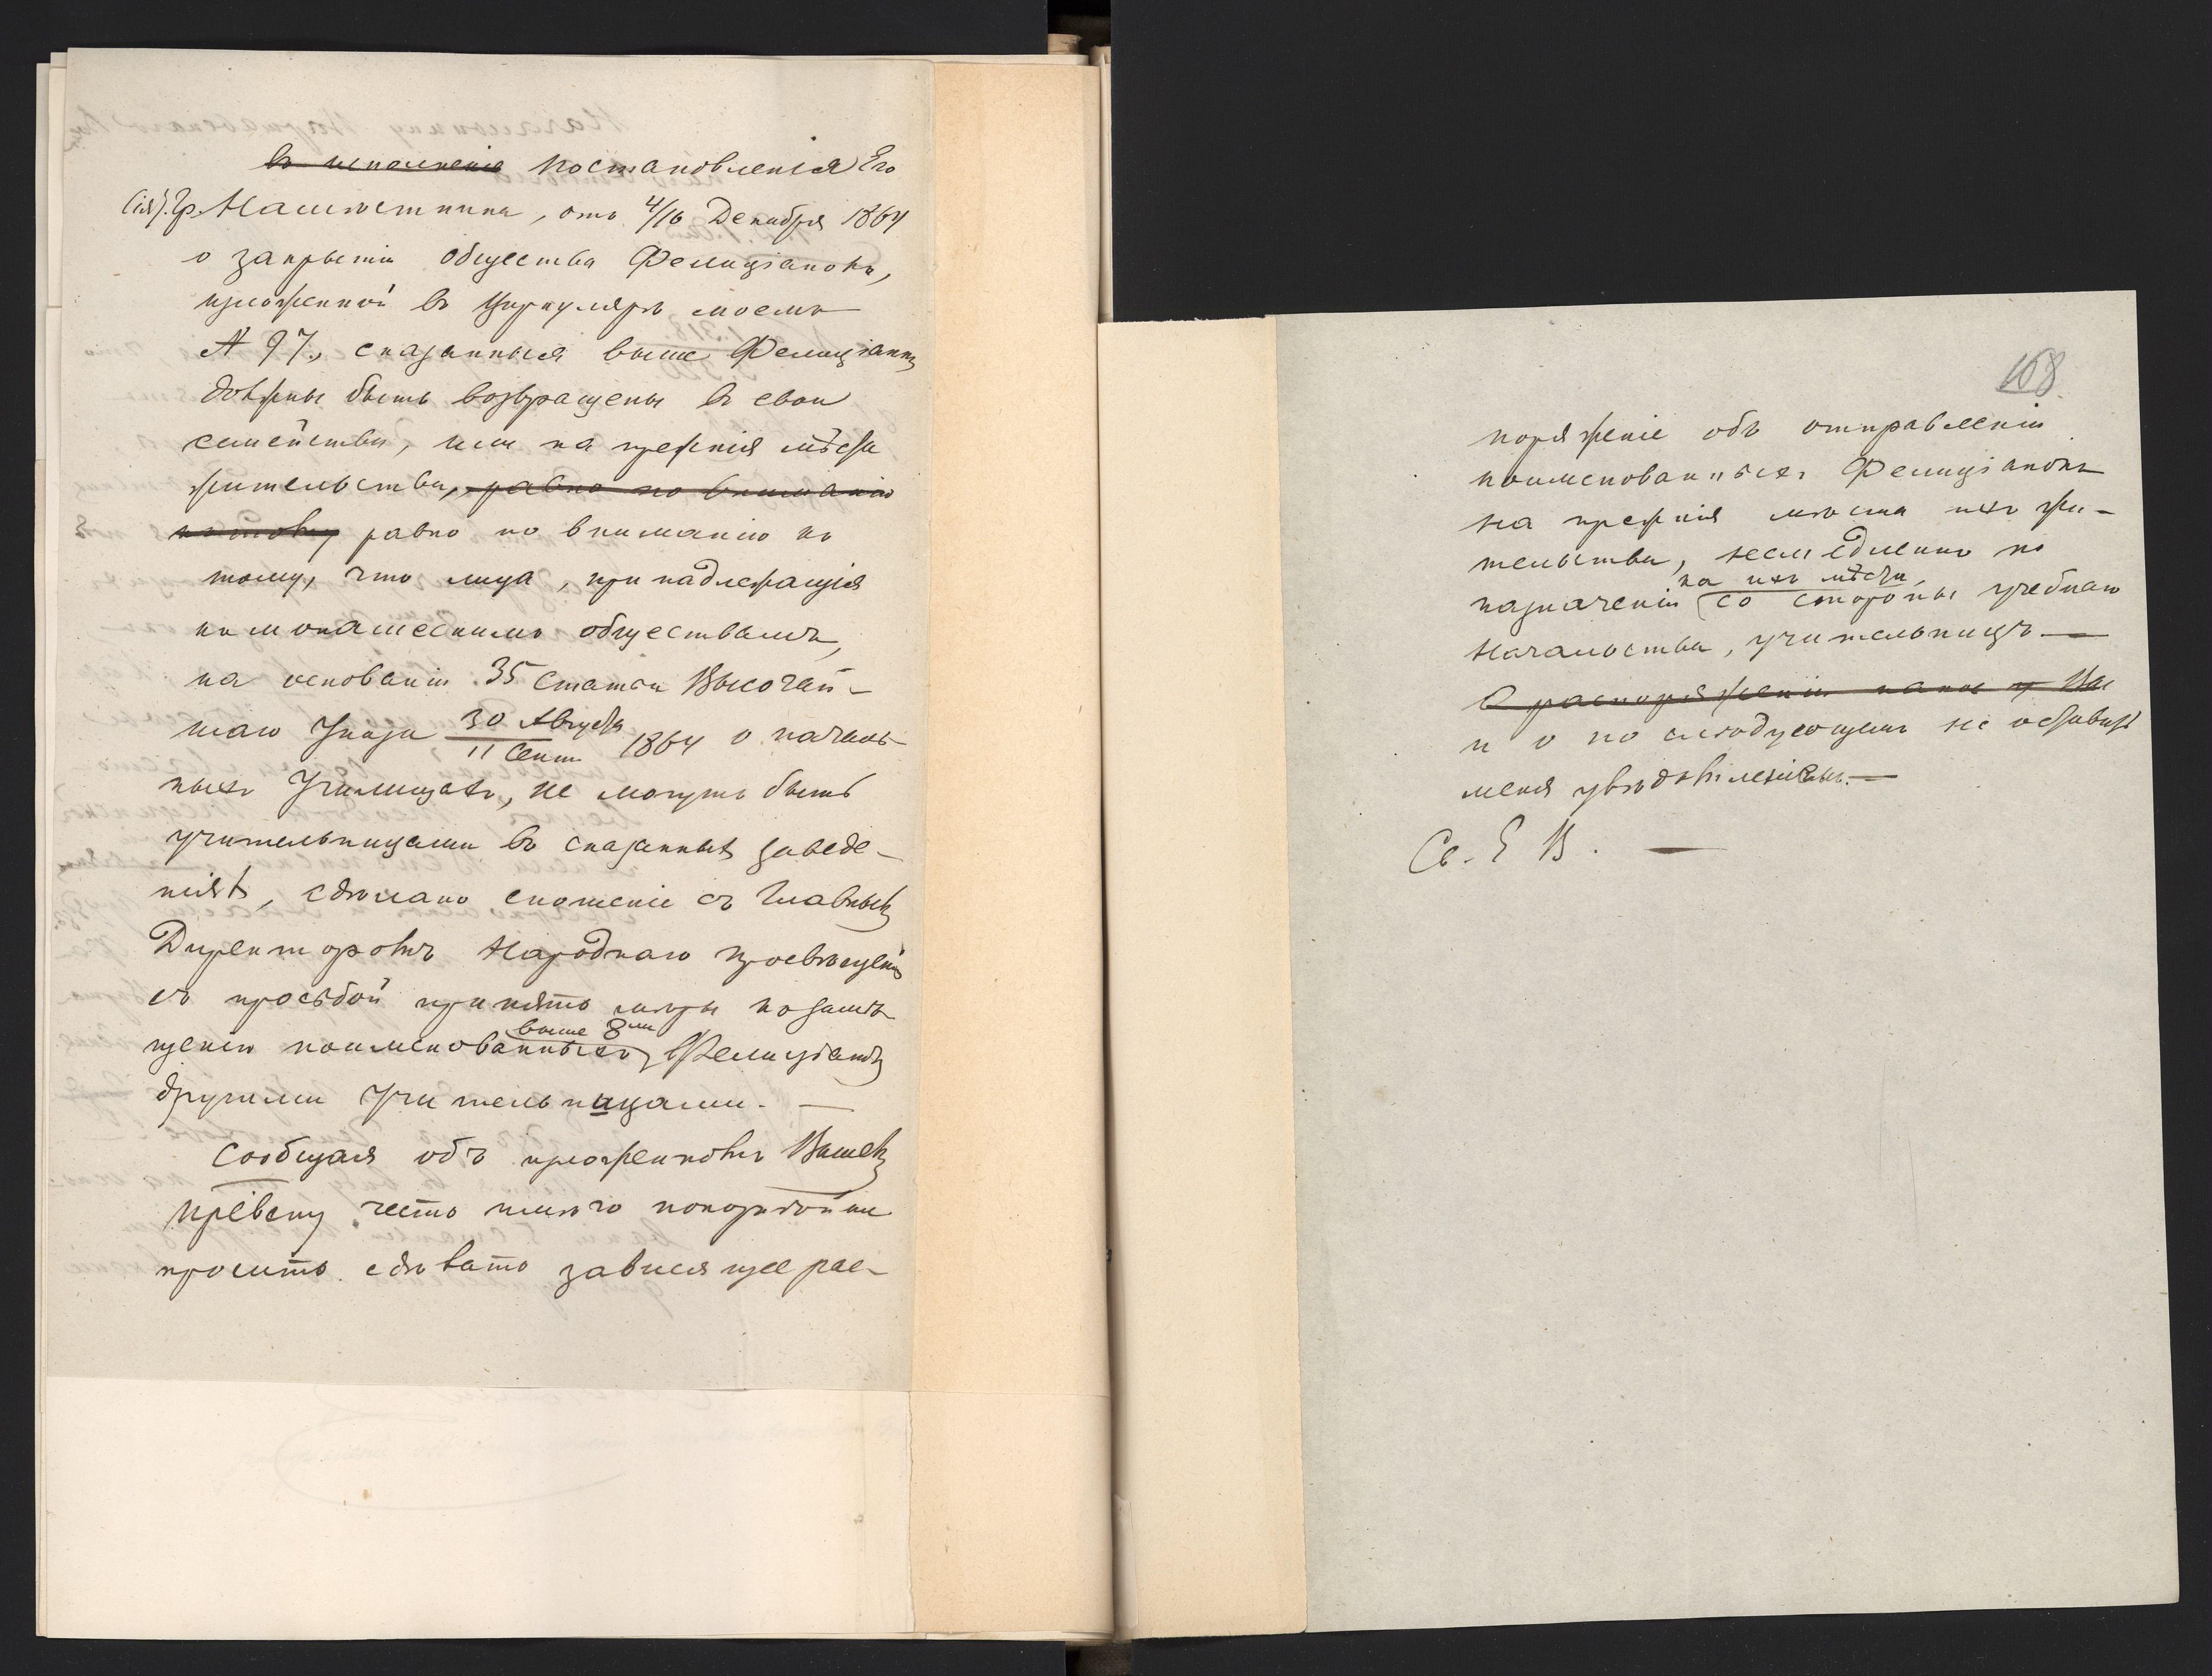 въ исполненіе Постановленія Его
Сія). Гр. Намѣстника, отъ 4/16 Декабря 1864
о закрытіи Общества Фелиціанокъ,
изложенной въ Циркулярѣ моемъ
№ 97., сказанныя выше Фелиціанки
должны быть возвращены въ свои
семейства, или на прежнія мѣста
жительства, равно по вниманію
къ тому равно по вниманію къ
тому, что лица, принадлежащія
къ монашескимъ обществамъ,
на основаніи 35 статьи Высочай-
шаго Указа 30 Августа / 11 Сент. 1864 о началь-
ныхъ Училищахъ, не могутъ быть
учительницами въ сказанныхъ заведе-
ніяхъ, сдѣлано сношеніе съ Главнымъ
Директоромъ Народнаго Просвѣщенія
съ просьбой принять мѣры къ замѣ-
выше 8ми
щенію поименованныхъ Фелиціанокъ
другими Учительницами. —
Сообщая объ изложенномъ Вашему
Прев-ву, честь имѣю покорнѣйше
просить сдѣлать зависящее рас-
168
поряженіе объ отправленіи
поименованныхъ Фелиціанокъ
на прежнія мѣста ихъ жи-
тельства, немедленно по
на ихъ мѣста,
назначеніи со стороны учебнаго
Начальства, учительницъ —
О распоряженіи какое Ва
и о послѣдующемъ не оставить
меня увѣдомленіемъ. —
Св. Е В. —